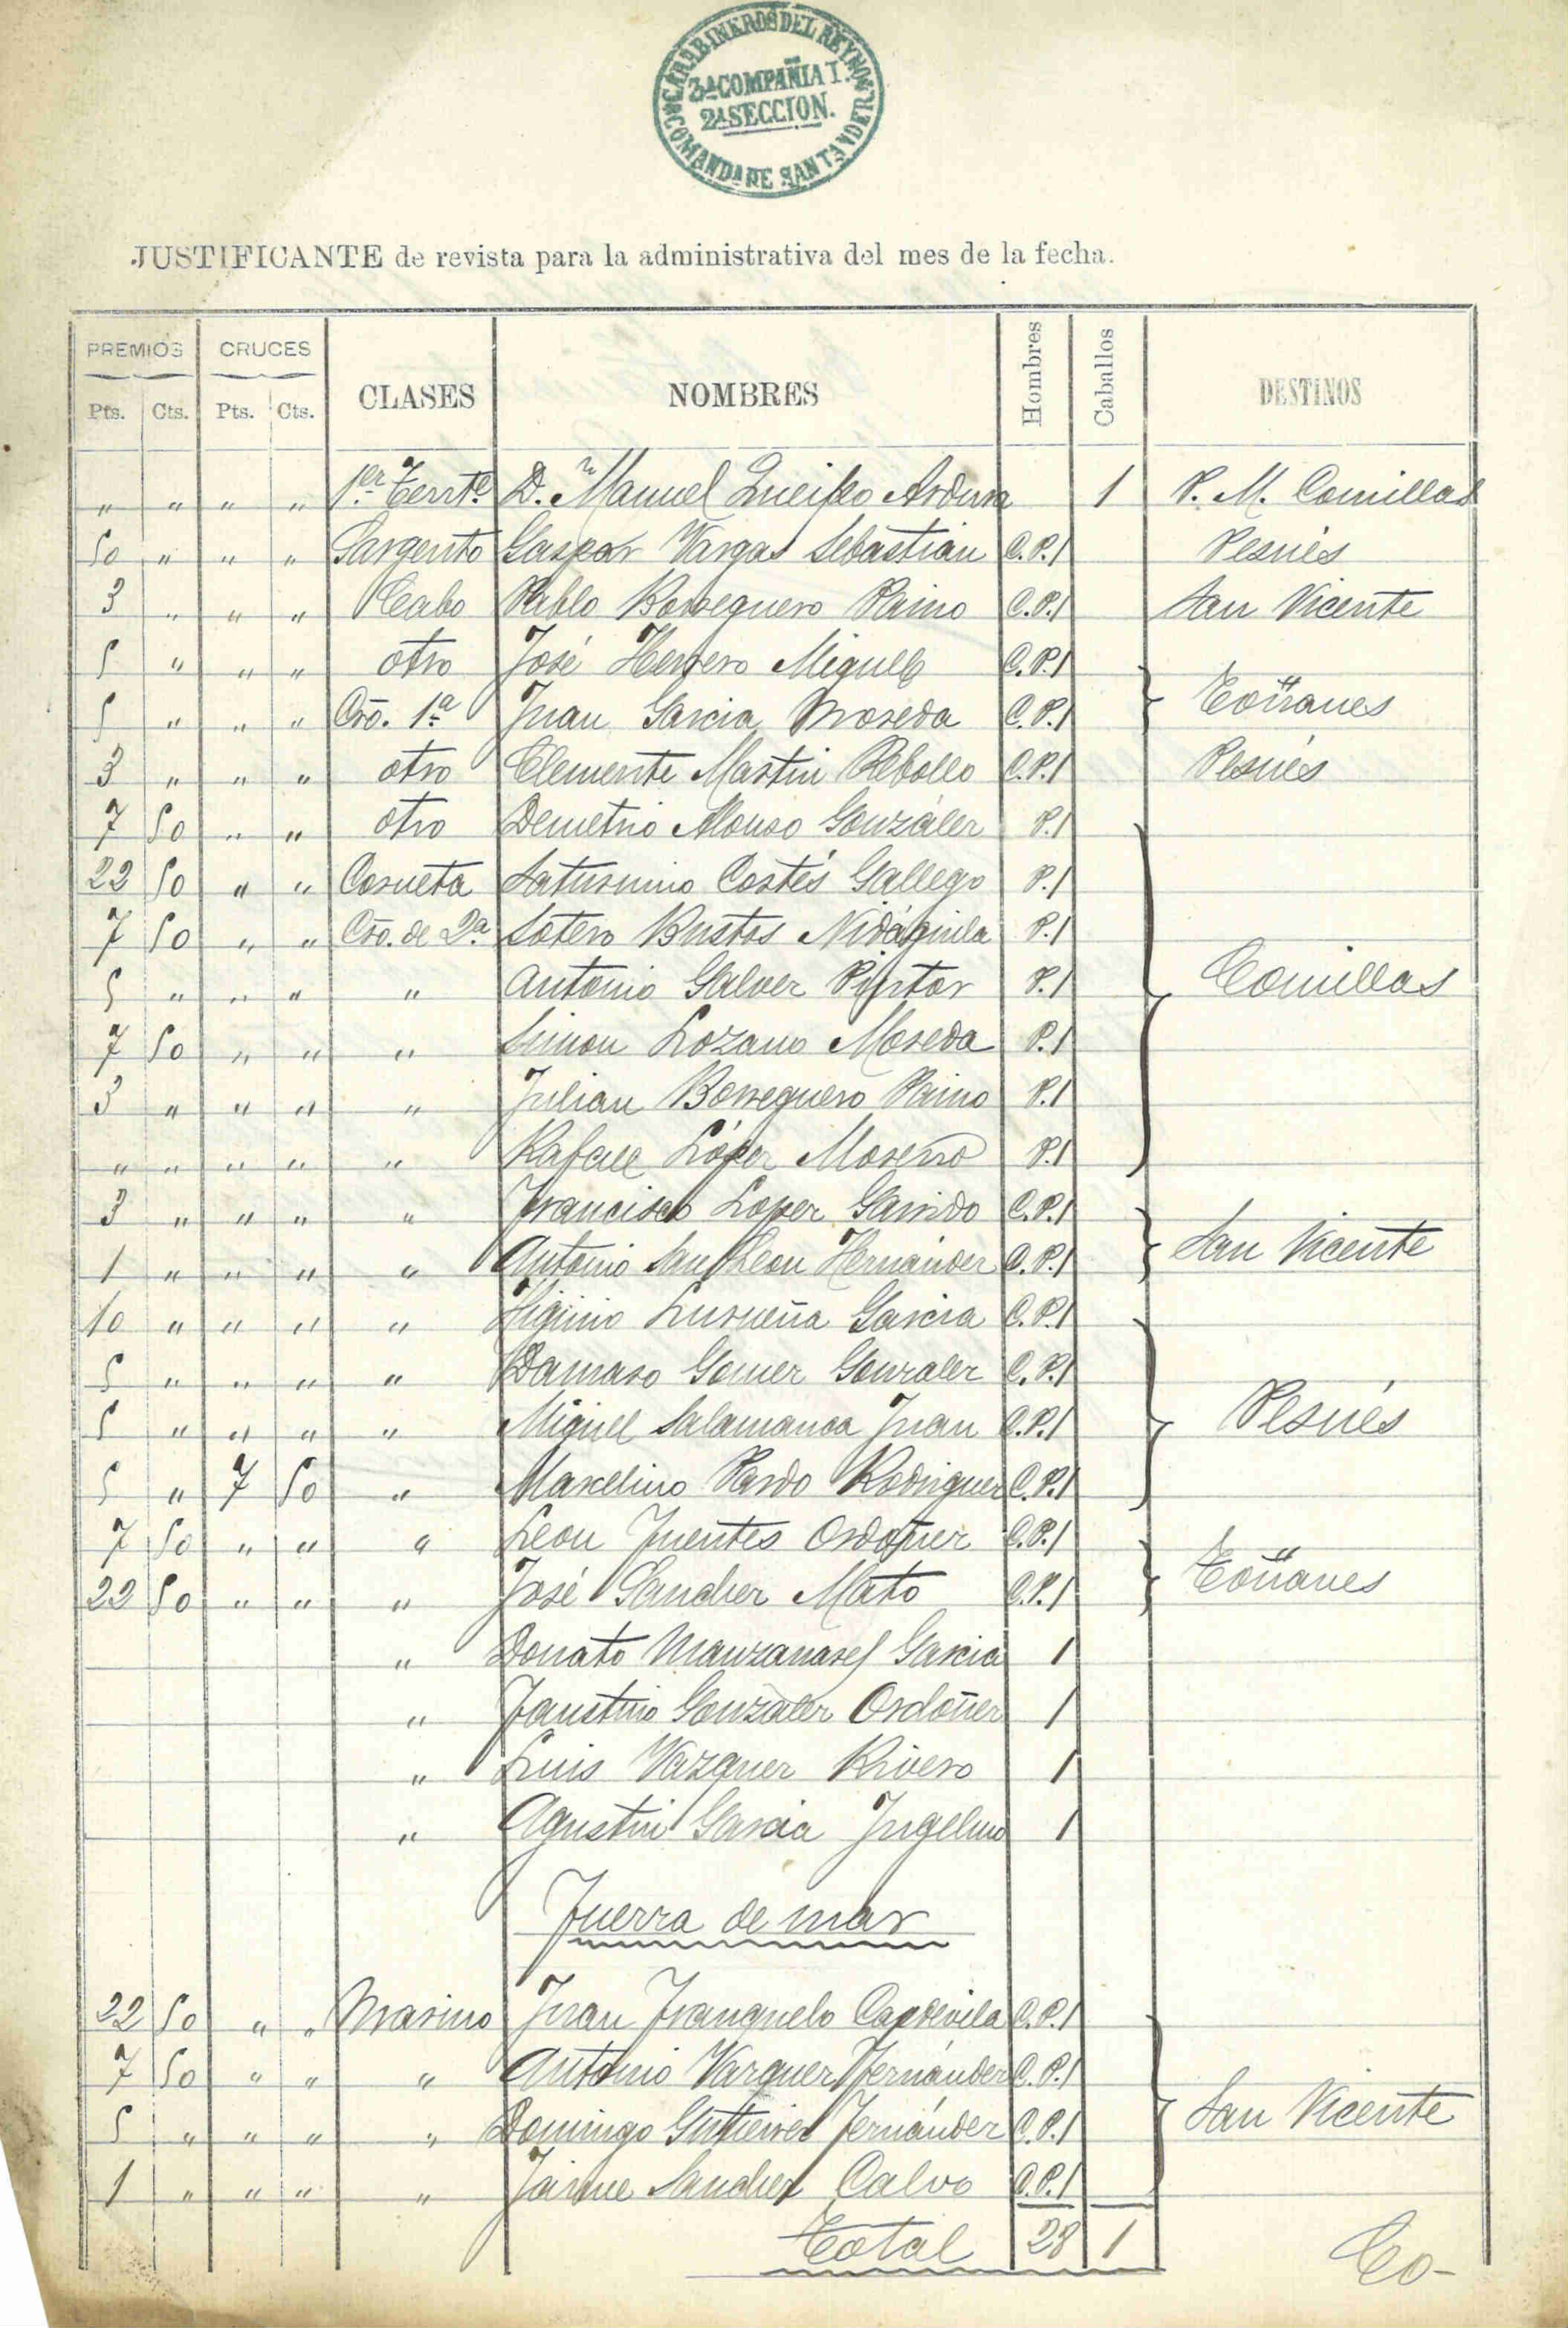 CARABINEROS DEL REYNO
3ª COMPAÑIA I.
2ª SECCION.
COMANDA DE SANTANDER
JUSTIFICANTE de revista para la administrativa del mes de la fecha.
PREMIOS CRUCES CLASES NOMBRES Hombres Caballos DESTINOS
Pts. Cts. Pts. Cts.
" " " " 1er Tente. D. Manuel Queipo Ardura 1 P. M. Comillas
50 " " " Sargento Gaspar Vargas Sebastián C.P.1 Pesués
3 " " " Cabo Pablo Borreguero Paino C.P.1 San Vicente
5 " " " otro José Herrero Miguel C.P.1
5 " " " Cro. 1ª Juan Garcia Moreda C.P.1 Toñanes
3 " " " otro Clemente Martin Rebollo C.P.1 Pesués
7 50 " " otro Demetrio Alonso Gonzáler P.1
22 50 " " Corneta Saturnino Cortés Gallego P.1
7 50 " " Cro. de 2ª Sotero Bustos Nidáguila P.1
5 " " " " Antonio Galver Pintor P.1 Comillas
7 50 " " " Simon Lozano Moreda P.1
3 " " " " Julian Borreguero Paino P.1
" " " " " Rafael Lóper Moreno P.1
3 " " " " Francisco Loper Garrido C.P.1
1 " " " " Antonio San Leon Hernánder C.P.1 San Vicente
10 " " " " Higinio Lurueña Garcia C.P.1
5 " " " " Damaso Gomer Gonzaler C.P.1
5 " " " " Miguel Salamanca Juan C.P.1 Pesués
5 " 7 50 " Marcelino Pardo Rodriguer C.P.1
7 50 " " " Leon Fuentes Ordoñer C.P.1
22 50 " " " José Sancher Mato C.P.1 Toñanes
" Donato Manzanares Garcia 1
" Faustino Gonzáler Ordoñer 1
" Luis Vazquer Rivero 1
" Agustin Garcia 1
Fuerza de mar
22 50 " " Marino Juan Franquelo Capdevila C.P.1
7 50 " " " Antonio Varquer Fernánder C.P.1
5 " " " " Domingo Gutierrer Fernánder C.P.1 San Vicente
1 " " " " Jaime Sancher Calvo C.P.1
Total 28 1 Co-